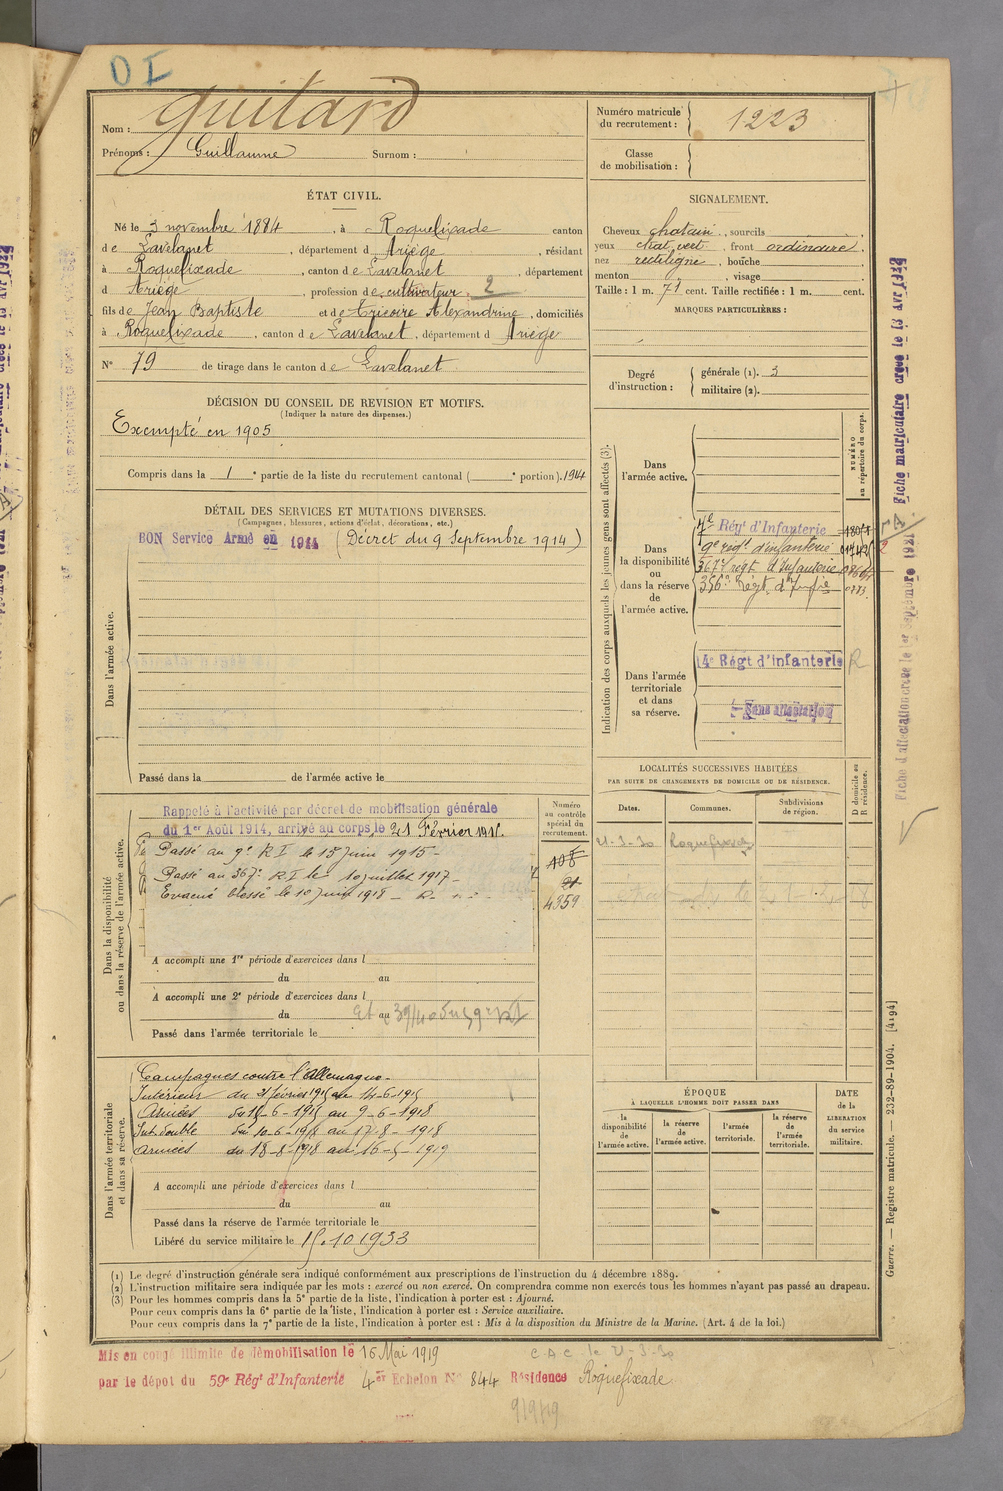 D I
Nom : Guitard
Prénoms : Guillaume Surnom :
ÉTAT CIVIL.
Né le 3 novembre 1884, à Roquefixade canton
de Lavelanet, département d Ariège, résidant
à Roquefixade, canton de Lavelanet, département
d Ariège, profession de cultivateur 2
fils de Jean Baptiste et de Tricoire Alexandrine, domiciliés
à Roquefixade, canton de Lavelanet, département d Ariège
N° 79 de tirage dans le canton de Lavelanet
DÉCISION DU CONSEIL DE REVISION ET MOTIFS.
(Indiquer la nature des dispenses.)
Exempté en 1905
Compris dans la 1e partie de la liste du recrutement cantonal ( e portion). 1914
DÉTAIL DES SERVICES ET MUTATIONS DIVERSES.
(Campagnes, blessures, actions d'éclat, décorations, etc.)
BON Service Armé en 1914 (Décret du 9 Septembre 1914)
Dans l'armée active.
Passé dans la de l'armée active le
Dans la disponibilité
ou dans la réserve de l'armée active.
Rappelé à l'activité par décret de mobilisation générale
du 1er Août 1914, arrivé au corps le 21 Février 1915.
Passé au 9e RI le 15 Juin 1915 -
Passé au 367e RI le 10 juillet 1917 -
Evacué blessé le 10 Juin 1918 -
Numéro
au contrôle
spécial du
recrutement.
108
21
4359
A accompli une 1re période d'exercices dans l
du au
A accompli une 2e période d'exercices dans l
du au
Passé dans l'armée territoriale le
Dans l'armée territoriale
et dans sa réserve.
Campagnes contre l'Allemagne -
Intérieur du 21 février 1915 au 14-6-1915
Armées du 15-6-1915 au 9-6-1918
Int. double du 10-6-1918 au 17-8-1918
Armées du 18-8-1918 au 16-5-1919
A accompli une période d'exercices dans l
du au
Passé dans la réserve de l'armée territoriale le
Libéré du service militaire le 15.10 1933
Numéro matricule
du recrutement : 1223
Classe
de mobilisation :
SIGNALEMENT.
Cheveux chatain, sourcils
yeux chat. vert, front ordinaire
nez rectiligne, bouche
menton , visage
Taille : 1 m. 71 cent. Taille rectifiée : 1 m. cent.
MARQUES PARTICULIÈRES :
Degré
d'instruction :
générale (1). 3
militaire (2).
Indication des corps auxquels les jeunes gens sont affectés (3).
NUMÉRO
au répertoire du corps.
Dans
l'armée active.
Dans
la disponibilité
ou
dans la réserve
de
l'armée active.
Régt d'Infanterie
9e régt d'infanterie
367e régt d'Infanterie
356e Régt d'Infie
Dans l'armée
territoriale
et dans
sa réserve.
14e Régt d'infanterie R
Sans affectation
LOCALITÉS SUCCESSIVES HABITÉES
PAR SUITE DE CHANGEMENTS DE DOMICILE OU DE RÉSIDENCE.
Dates.
Communes.
Subdivisions
de région.
D domicile ou
R résidence.
21-3-30 Roquefixade
ÉPOQUE
À LAQUELLE L'HOMME DOIT PASSER DANS
la
disponibilité
de
l'armée active.
la réserve
de
l'armée active.
l'armée
territoriale.
la réserve
de
l'armée
territoriale.
DATE
de la
LIBÉRATION
du service
militaire.
Fiche matriculaire créée le 13 Avr 1922
Fiche d'affectation créée le 1er Septembre 1921
Guerre. — Registre matricule. — 232-89-1904. [4194]
(1) Le degré d'instruction générale sera indiqué conformément aux prescriptions de l'instruction du 4 décembre 1889.
(2) L'instruction militaire sera indiquée par les mots : exercé ou non exercé. On comprendra comme non exercés tous les hommes n'ayant pas passé au drapeau.
(3) Pour les hommes compris dans la 5e partie de la liste, l'indication à porter est : Ajourné.
Pour ceux compris dans la 6e partie de la liste, l'indication à porter est : Service auxiliaire.
Pour ceux compris dans la 7e partie de la liste, l'indication à porter est : Mis à la disposition du Ministre de la Marine. (Art. 4 de la loi.)
Mis en congé illimité de démobilisation le 16 Mai 1919
C.A.C. le 21-3-30
par le dépôt du 59e Régt d'Infanterie 4er Echelon N° 844 Résidence Roquefixade